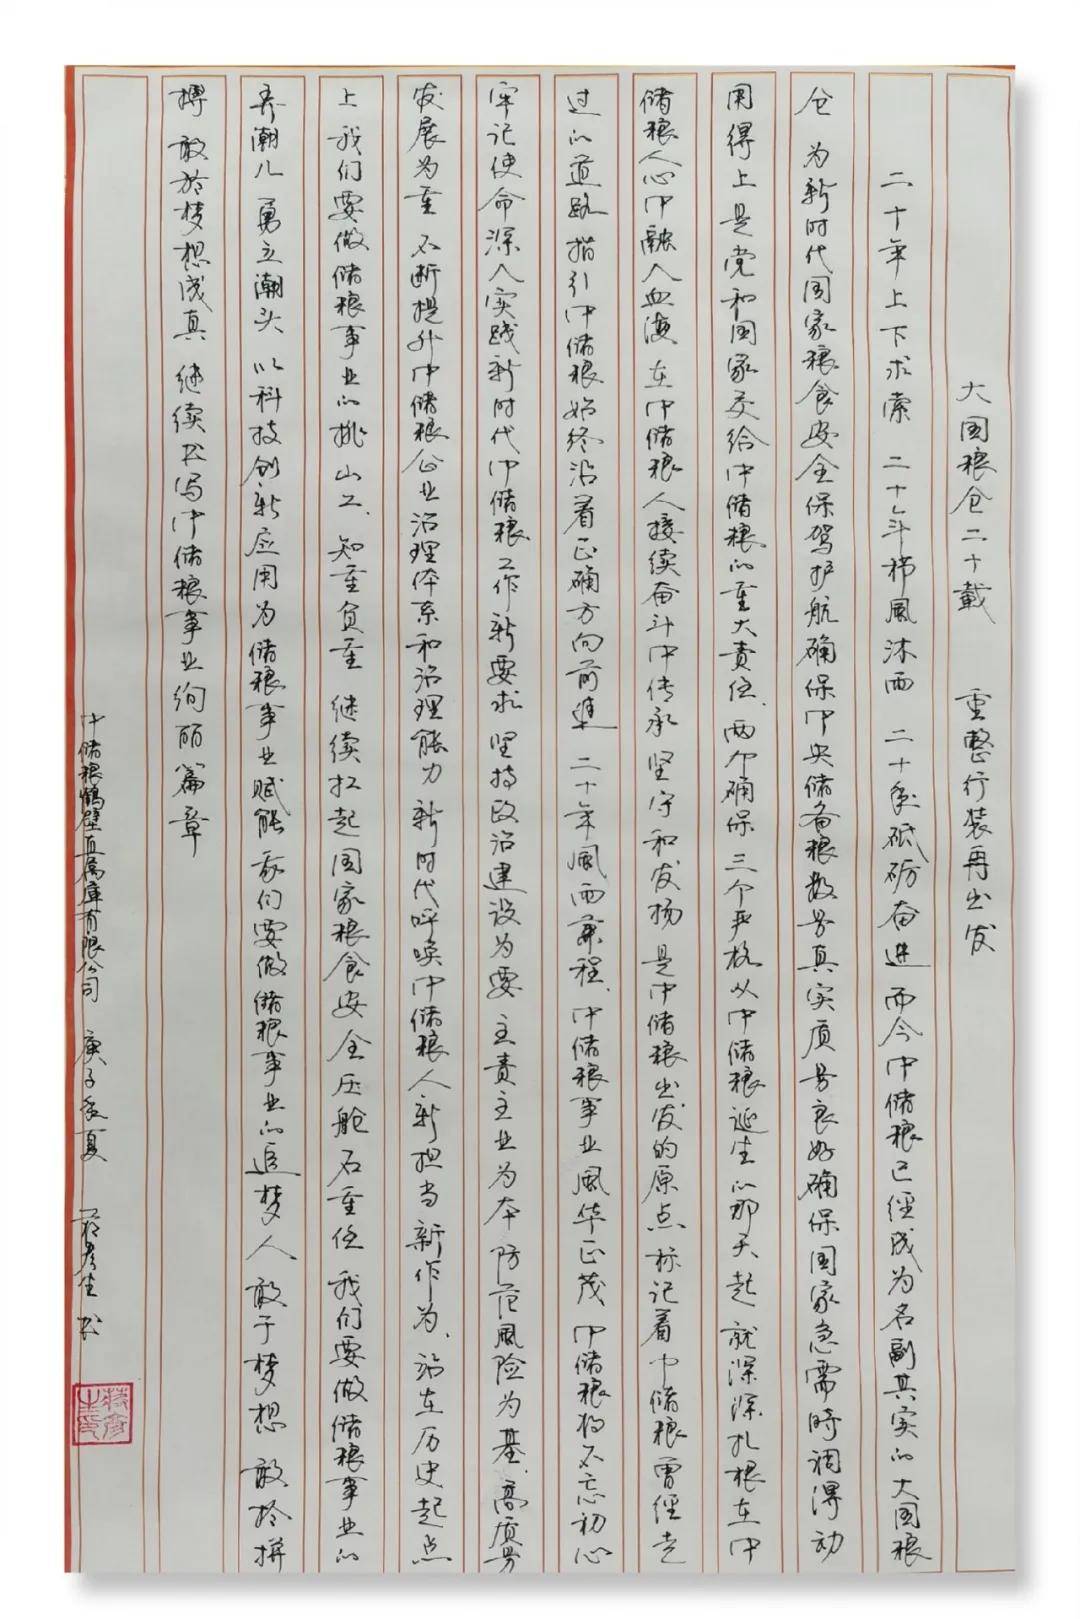 大国粮仓二十载 重整行装再出发
二十年上下求索 二十年栉風沐雨 二十年砥砺奋进 而今中储粮已經成为名副其实的大国粮
仓 为新时代国家粮食安全保驾护航确保中央储备粮数量真实质量良好确保国家急需時调得动
用得上是党和国家交给中储粮的重大责任 两个确保 三个严格从中储粮诞生的那天起 就深深扎根在中
储粮人心中融入血液 在中储粮人接续奋斗中传承 坚守和发扬 是中储粮出发的原点标记着中储粮曾经走
过的道路 指引中储粮始终沿着正确方向前進 二十年風雨兼程 中储粮事业風华正茂 中储粮将不忘初心
牢记使命深入实践新时代中储粮工作新要求 坚持政治建设为要 主责主业为本 防范風险为基 高质量
发展为重 不断提升中储粮企业治理体系和治理能力 新时代呼唤中储粮人新担当新作为 站在历史起点
上 我们要做储粮事业的挑山工 知重负重 继续扛起国家粮食安全压舱石重任 我们要做储粮事业的
弄潮儿 勇立潮头 以科技创新应用为储粮事业赋能 我们要做储粮事业的追梦人 敢于梦想 敢於拼
搏 敢於梦想成真 继续书写中储粮事业绚丽篇章
中储粮鹤壁直属库有限公司 庚子年夏 蒋彦生书
蒋彦生印